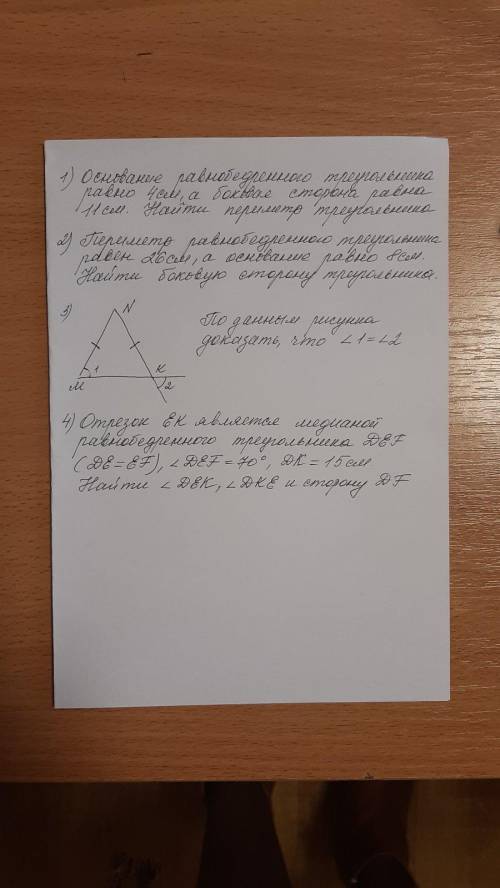 1) Основание равнобедренного треугольника
равно 4см, а боковая сторона равна
11см. Найти периметр треугольника
2) Периметр равнобедренного треугольника
равен 26см, а основание равно 8см.
Найти боковую сторону треугольника.
3)
N
По данным рисунка
доказать, что ∠1=∠2
1
K
M
2
4) Отрезок EK является медианой
равнобедренного треугольника DEF
(DE=EF), ∠DEF=70°, DK=15см
Найти ∠DEK, ∠DKE и сторону DF